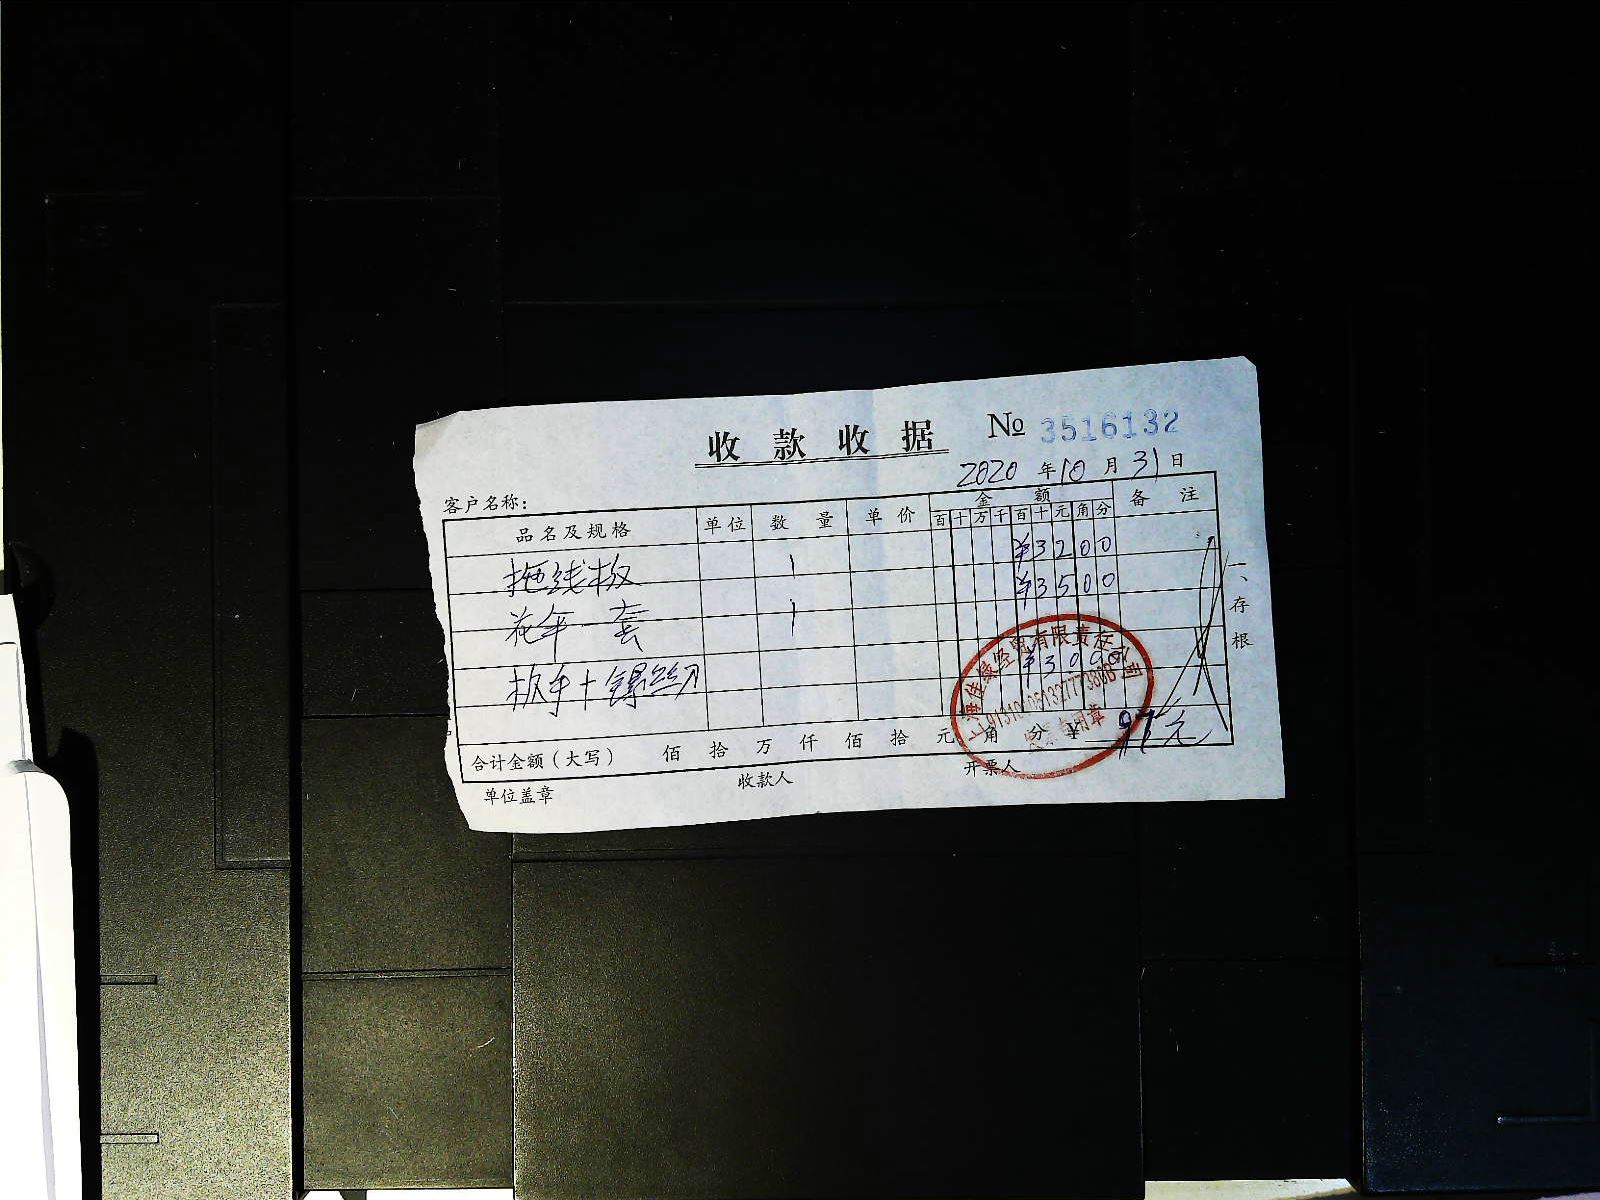 收款收据 № 3516132
2020 年 10 月 31 日
客户名称：
品名及规格 单位 数量 单价 金额 备注
百 十 万 千 百 十 元 角 分
拖线板 1 ¥3200
花伞一套 1 ¥3500
扳手+镙丝刀 ¥3000
合计金额（大写） 佰 拾 万 仟 佰 拾 元 角 分 ¥ 97元
单位盖章 收款人 开票人
一、存根